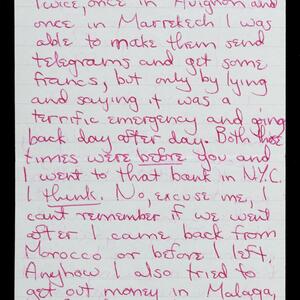 Twice, once in Avignon and
once in Marrekech I was
able to make them send
telegrams and get some
francs, but only by lying
and saying it was a
terrific emergency and going
back day after day. Both those
times were before you and
I went to that bank in N.Y.C.
I think. No, excuse me, I
can't remember if we went
after I came back from
Morocco or before I left.
Anyhow I also tried to
get out money in Malaga,